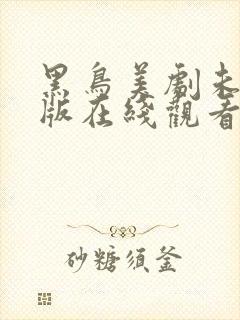 黑鳥美劇未
版在綫觀看
砂糖須釜